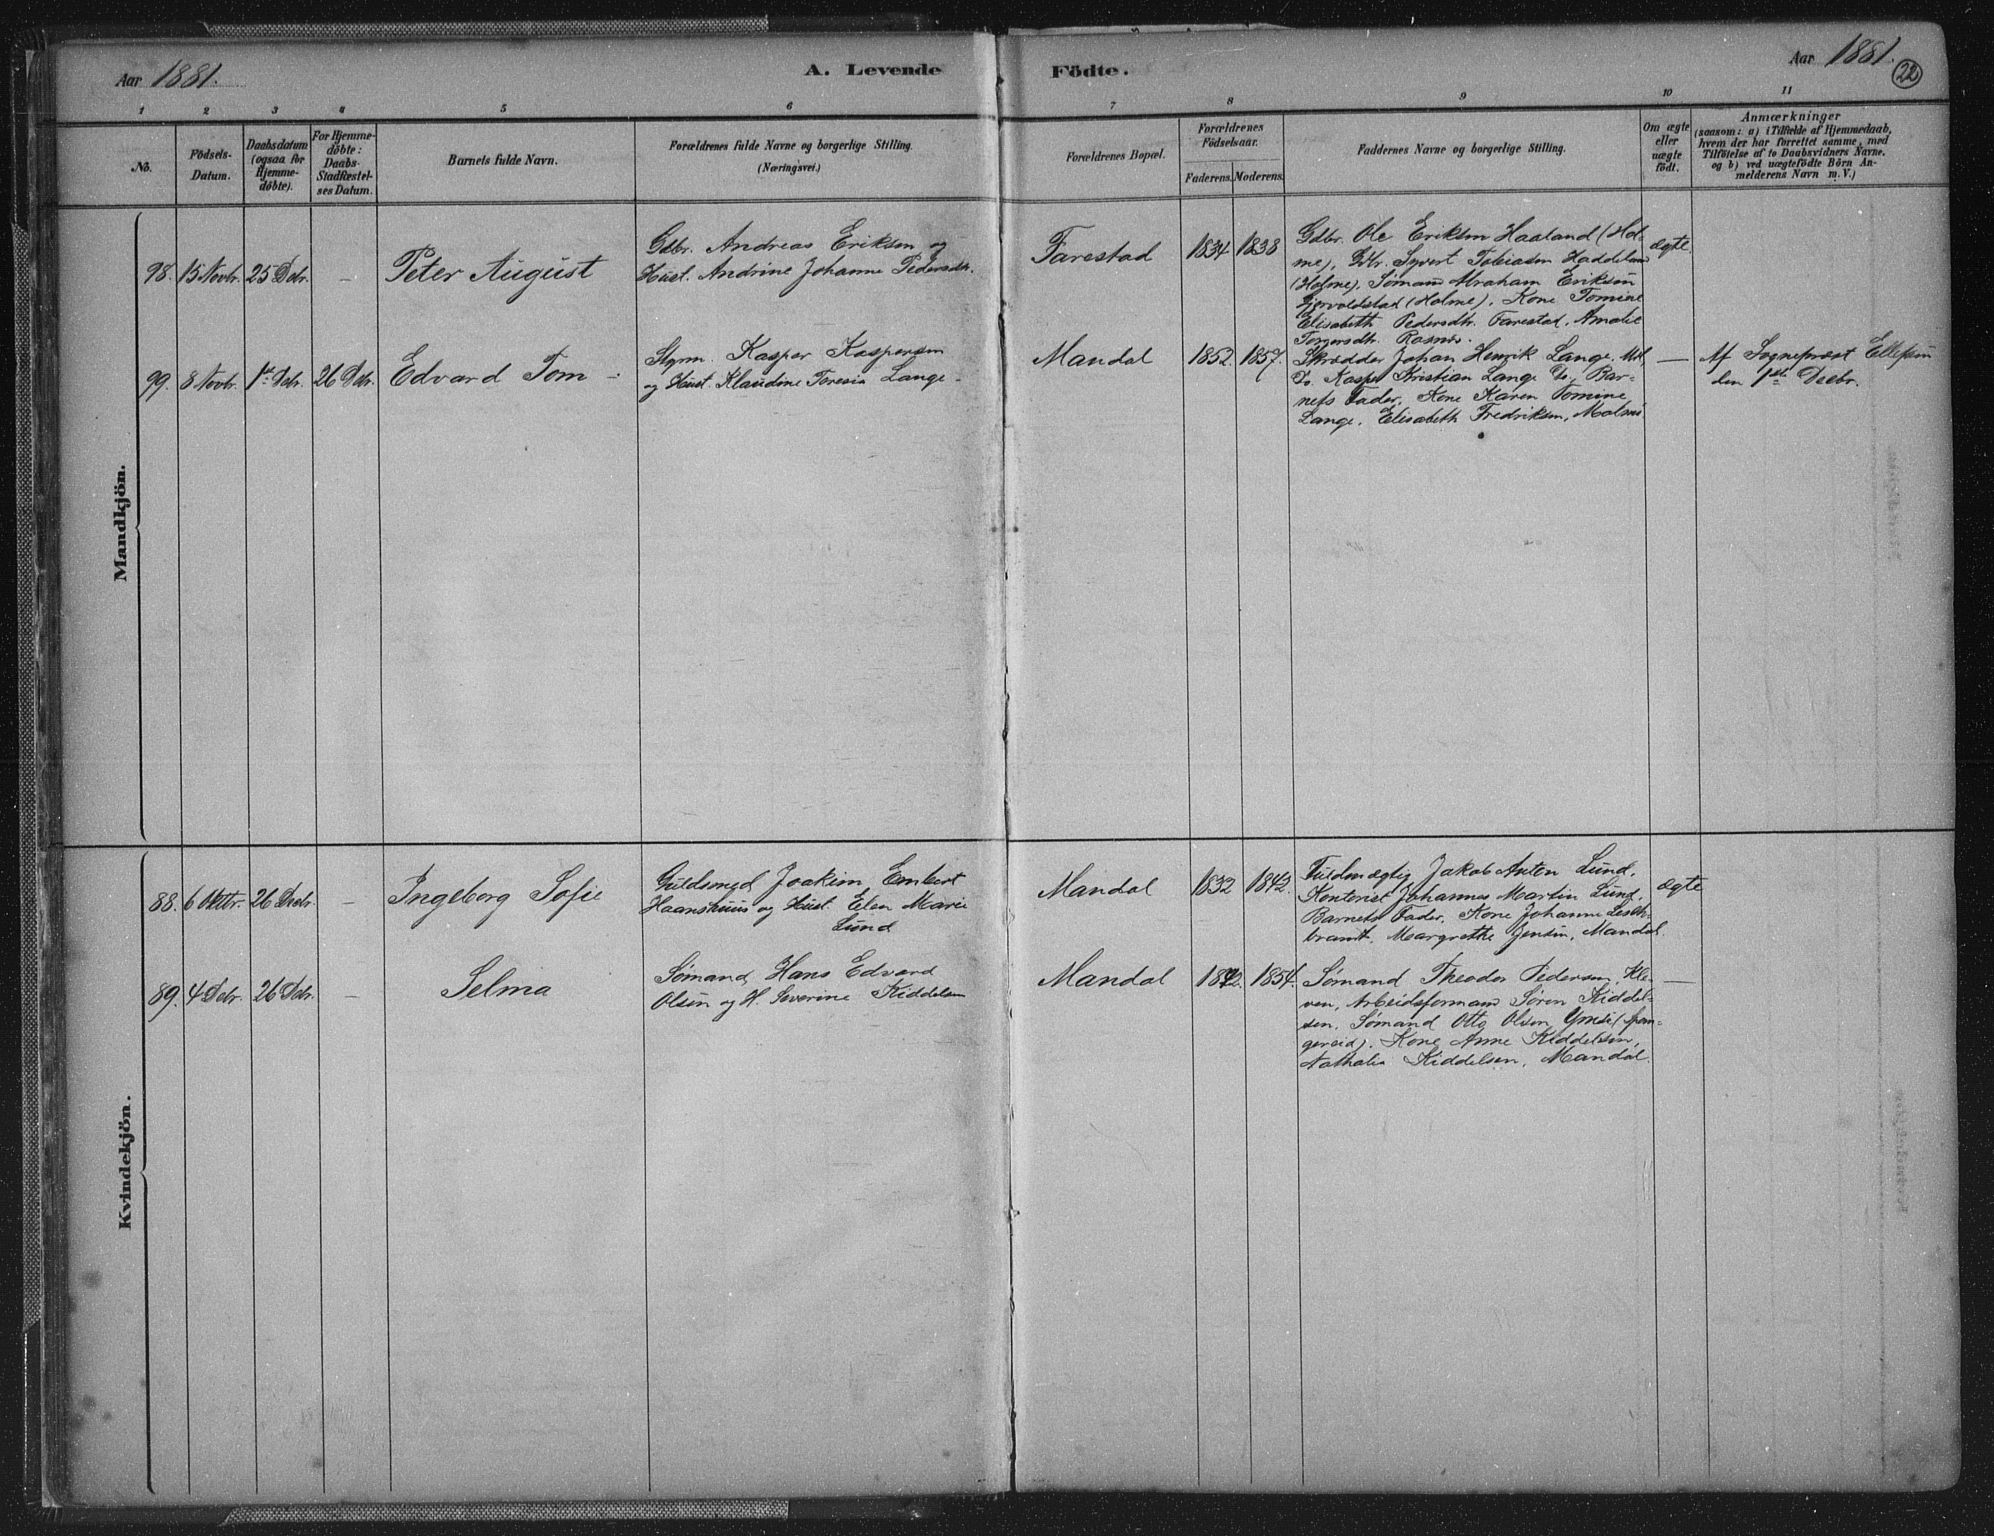 Aar 1881.
A. Levende Födte.
Aar 1881.
22
1 2 3 4 5 6 7 8 9 10 11
No.
Födsels-
Datum.
Daabsdatum
(ogsaa for
Hjemme-
döbte).
For Hjemme-
döbte:
Daabs-
Stadfæstel-
ses Datum.
Barnets fulde Navn.
Forældrenes fulde Navne og borgerlige Stilling.
(Næringsvei.)
Forældrenes Bopæl.
Forældrenes
Födselsaar.
Faderens.
Moderens.
Faddernes Navne og borgerlige Stilling.
Om ægte
eller
uægte
födt.
Anmærkninger
(saasom: a) i Tilfælde af Hjemmedaab,
hvem der har forrettet samme, med
Tilföielse af to Daabsvidners Navne,
og b) ved uægtefödte Börn An-
melderens Navn m. V.)
Mandkjön.
98. 15 Novbr. 25 Debr. — Peter August
Gdbr. Andreas Eriksen og
Hust. Andrine Johanne Pedersdtr.
Farestad 1834 1838
Gdbr. Ole Eriksen Haaland (Hol-
me), Gdbr. Syvert Tobiasen Haddeland
(Holme), Sømand Abraham Eriksen
(Holme). Kone Tomine
Elisabeth Pedersdtr. Farestad, Amalie
Torgersdtr. Rosnes.
ægte
99. 8 Novbr. 1st Debr. 26 Debr. Edvard Tom —
Styrm. Kasper Kaspersen
og Hust. Klaudine Teresia Lange.
Mandal 1852. 1857.
Skrædder Johan Henrik Lange, Mdl,
Do. Kasper Kristian Lange Do, Bar-
nets Fader, Kone Karen Tomine
Lange, Elisabeth Fredriksen, Malmø
—
Af Sognepræst Ellefsen
den 1ste Decbr.
Kvindekjön.
88. 6 Oktbr. 26 Decbr. — Ingeborg Sofie
Guldsmed Joakim Embert
Haanshuus og Hust. Elen Marie
Lund
Mandal 1832 1842.
Fuldmægtig Jakob Anton Lund,
Kontorist Johannes Martin Lund,
Barnets Fader, Kone Johanne Lesch-
brandt, Margrethe Jensen, Mandal.
ægte
89. 4 Debr. 26 Debr. — Selma
Sømand Hans Edvard
Olsen og H. Severine Kiddelsen
Mandal 1854.
Sømand Theodor Pedersen, Kle-
ven, Arbeidsformand Søren Kiddel-
sen, Sømand Otto Olsen (Span-
gereid). Kone Anne Kiddelsen,
Nathalia Kiddelsen, Mandal.
—